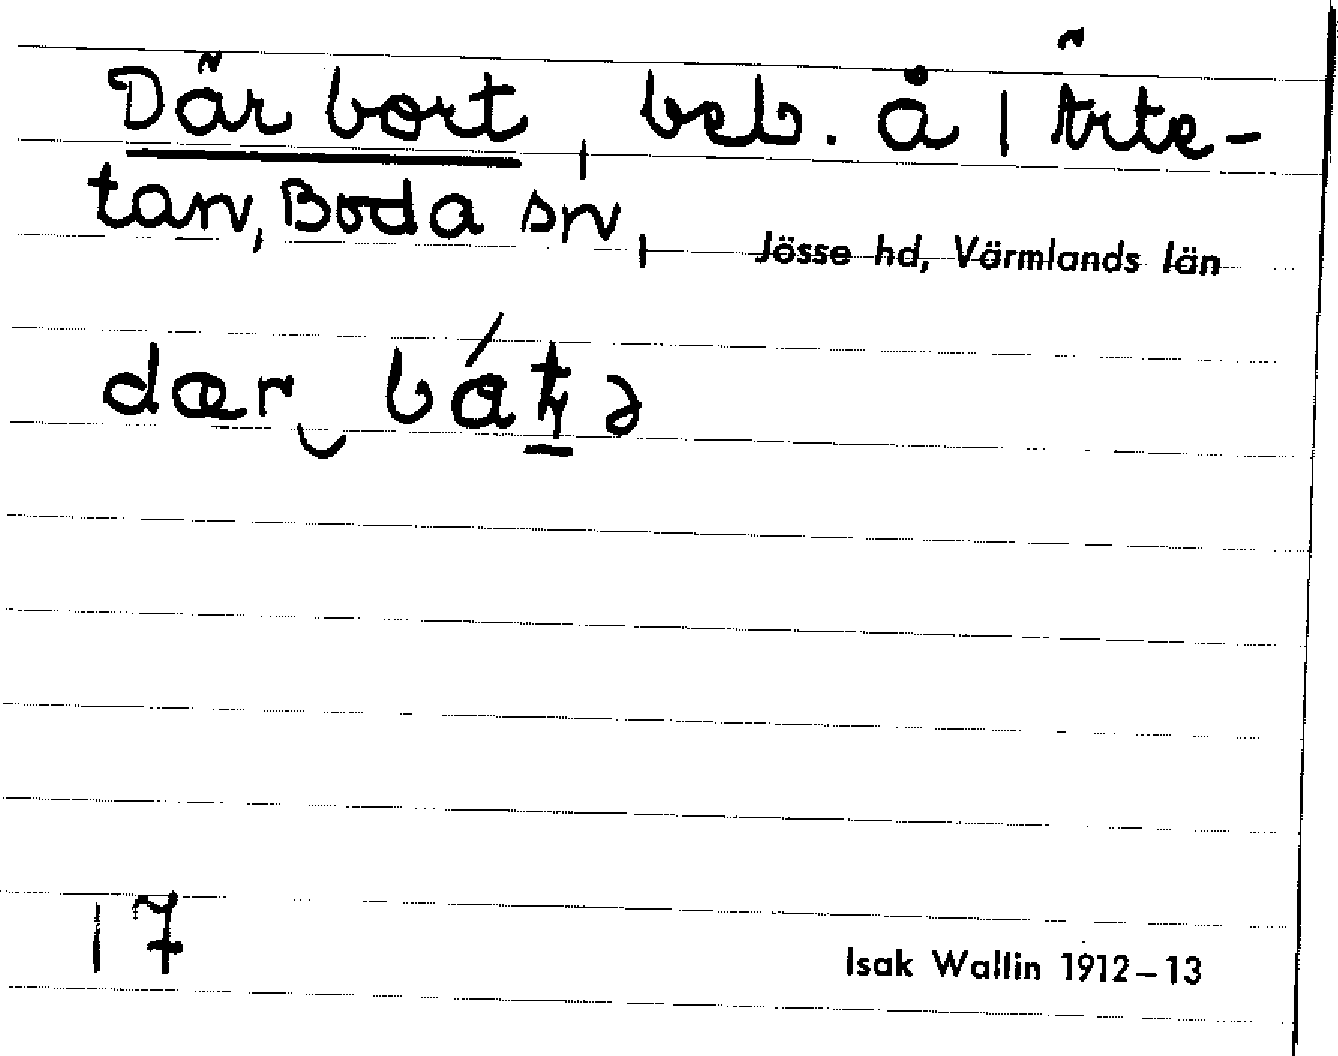 Där bort, beb. å 1 Ärte-
tan, Boda sn,
Jösse hd, Värmlands län
dær
17
Isak Wallin 1912–13